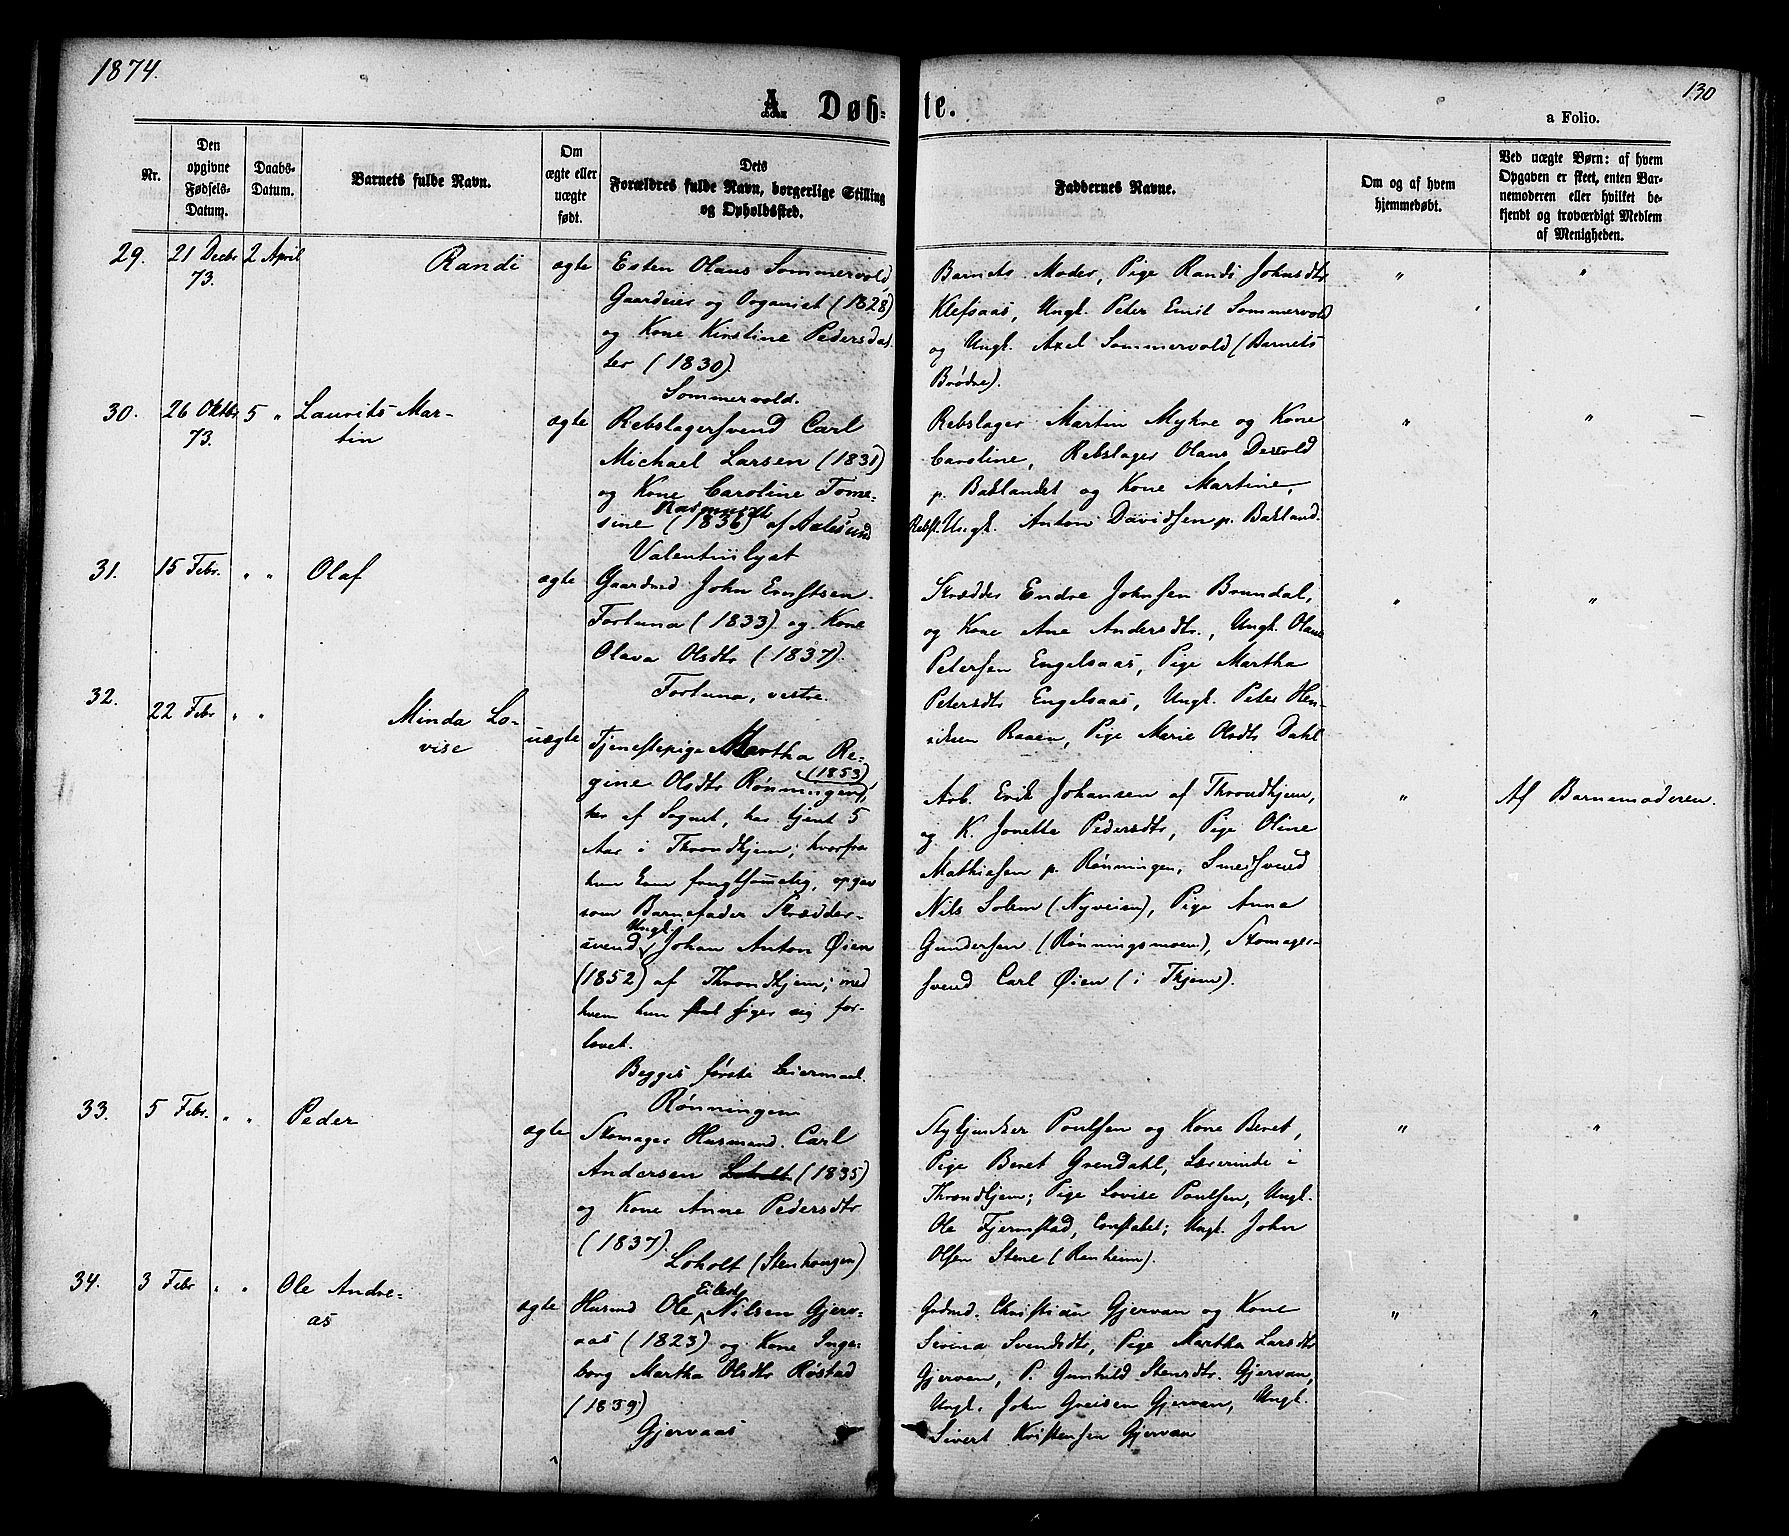 1874.
130
A. Døb-
te.
a Folio.
Nr.
Den
opgivne
Fødsels-
Datum.
Daabs-
Datum.
Barnets fulde Navn.
Om
ægte eller
uægte
født.
Dets
Forældres fulde Navn, borgerlige Stilling
og Opholdssted.
Faddernes Navne.
Om og af hvem
hjemmedøbt.
Ved uægte Børn: af hvem
Opgaven er skeet, enten Bar-
nemoderen eller hvilket be-
kjendt og troværdigt Medlem
af Menigheden.
29.
21 Decbr
73.
2 April
Randi
ægte
Esten Olaus Sommervold,
Gaardeier og Organist (1828)
og Kone Kirstine Pedersdat-
ter (1830).
Sommervold.
Barnets Moder, Pige Randi Johnsdtr
Klefsaas, Ungk. Peter Emil Sommervold
og Ungk. Axel Sommervold (Barnets
Brødre).
"
"
30.
26 Oktbr
73.
5 "
Laurits Mar-
tin
ægte
Rebslagersvend Carl
Michael Larsen (1831)
og Kone Caroline Tome-
Rasmusdtr
sine (1836) af Aalesund
Valentinlyst
Rebslager Martin Myhre og Kone
Caroline, Rebslager Olaus Devold
p. Baklandet og Kone Martine,
Rebsl. Ungk. Anton Davidsen p. Bakland.
"
"
31.
15 Febr.
" "
Olaf
ægte
Gaardmd John Ernstsen
Fortuna (1833) og Kone
Olava Olsdtr (1837).
Fortuna, vestre.
Skrædder Endre Johnsen Brundal,
og Kone Ane Andersdtr., Ungk. Olaus
Petersen Engelsaas, Pige Martha
Petersdtr Engelsaas, Ungk. Peter Hen-
riksen Raaen, Pige Marie Olsdtr Dahl
"
"
32.
22 Febr
" "
Minda Lo-
vise
uægte
Tjenestepige Martha Re-
(1853)
gine Olsdtr Rønningen,
her af Sognet, har tjent 5
Aar i Throndhjem; hvorfra
hun kom frugtsommelig, opgav
som Barnefader Skrædder-
Ungk.
svend Johan Anton Øien
(1852) af Throndhjem; med
hvem hun skal siges sig for-
lovet.
Begges første Leiermaal.
Rønningen
Arb. Erik Johansen af Throndhjem,
og K. Jonetta Pedersdtr, Pige Oline
Mathiesen p. Rønningen, Smedsvend
Nils Solem (Nyveien), Pige Anna
Gundersen (Rønningsmoen), Skomager-
svend Carl Øien (i Thjem).
"
Af Barnemoderen.
33.
5 Febr.
" "
Peder
ægte
Skomager Husmand. Carl
Andersen Loholt (1835)
og Kone Anne Pedersdtr
(1837).
Loholt (Stenhaugen)
Stykjunker Poulsen og Kone Beret,
Pige Beret Grendahl, Lærerinde i
Throndhjem; Pige Lovise Poulsen, Ungk.
Ole Fjermstad, Constabel; Ungk. John
Olsen Stene (Renheim).
"
"
34.
3 Febr
" "
Ole Andre-
as
ægte
Eilert
Husmd Ole Nilsen Gjerv-
aas (1823) og Kone Inge-
borg Martha Olsdtr Røstad
(1839)
Gjervaas
Grdmd. Christian Gjervan og Kone
Sivina Svendsdtr, Pige Martha Larsdtr
Gjervan, P. Gunhild Stensdtr. Gjervan,
Ungk. John Greisen Gjervan, Ungk.
Sivert Kristensen Gjervan
"
"